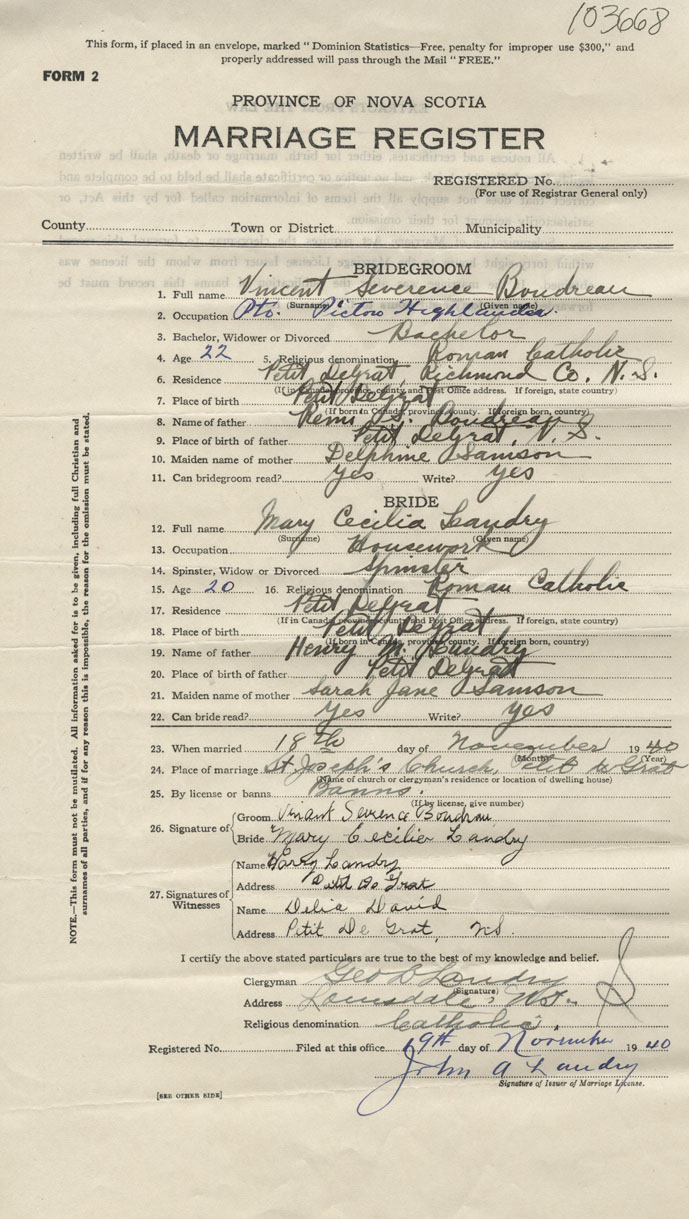 103668
This form, if placed in an envelope, marked "Dominion Statistics—Free, penalty for improper use $300," and
properly addressed will pass through the Mail "FREE."
FORM 2
PROVINCE OF NOVA SCOTIA
MARRIAGE REGISTER
REGISTERED No.
(For use of Registrar General only)
County Town or District Municipality
BRIDEGROOM
1. Full name Vincent Severence Boudreau
(Surname) (Given name)
2. Occupation Pte. Pictou Highlanders.
3. Bachelor, Widower or Divorced Bachelor
4. Age 22 5. Religious denomination Roman Catholic
6. Residence Petit DeGrat, Richmond Co. N.S.
(If in Canada, province, county, and Post Office address. If foreign, state country)
7. Place of birth Petit DeGrat
(If born in Canada, province, county. If foreign born, country)
8. Name of father Remi J.S. Boudreau
9. Place of birth of father Petit DeGrat, N.S.
10. Maiden name of mother Delphine Samson
11. Can bridegroom read? yes Write? yes
BRIDE
12. Full name Mary Cecilia Landry
(Surname) (Given name)
13. Occupation Housework
14. Spinster, Widow or Divorced Spinster
15. Age 20 16. Religious denomination Roman Catholic
17. Residence Petit DeGrat
(If in Canada, province, county and Post Office address. If foreign, state country)
18. Place of birth Petit DeGrat
(If born in Canada, province, county. If foreign born, country)
19. Name of father Henry M. Landry
20. Place of birth of father Petit DeGrat
21. Maiden name of mother Sarah Jane Samson
22. Can bride read? yes Write? yes
23. When married 18th day of November 1940
(Month) (Year)
24. Place of marriage St Joseph's Church, Petit de Grat
(Name of church or clergyman's residence or location of dwelling house)
25. By license or banns Banns.
(If by license, give number)
26. Signature of
Groom Vincent Severence Boudreau
Bride Mary Cecilia Landry
27. Signatures of Witnesses
Name Harry Landry
Address Petit De Grat
Name Delia David
Address Petit De Grat, N.S.
I certify the above stated particulars are true to the best of my knowledge and belief.
Clergyman Geo D Landry
(Signature)
Address
Religious denomination Catholic.
Registered No. Filed at this office 19th day of November 1940
John A Landry
Signature of Issuer of Marriage License.
[SEE OTHER SIDE]
NOTE.—This form must not be mutilated. All information asked for is to be given, including full Christian and
surnames of all parties, and if for any reason this is impossible, the reason for the omission must be stated.